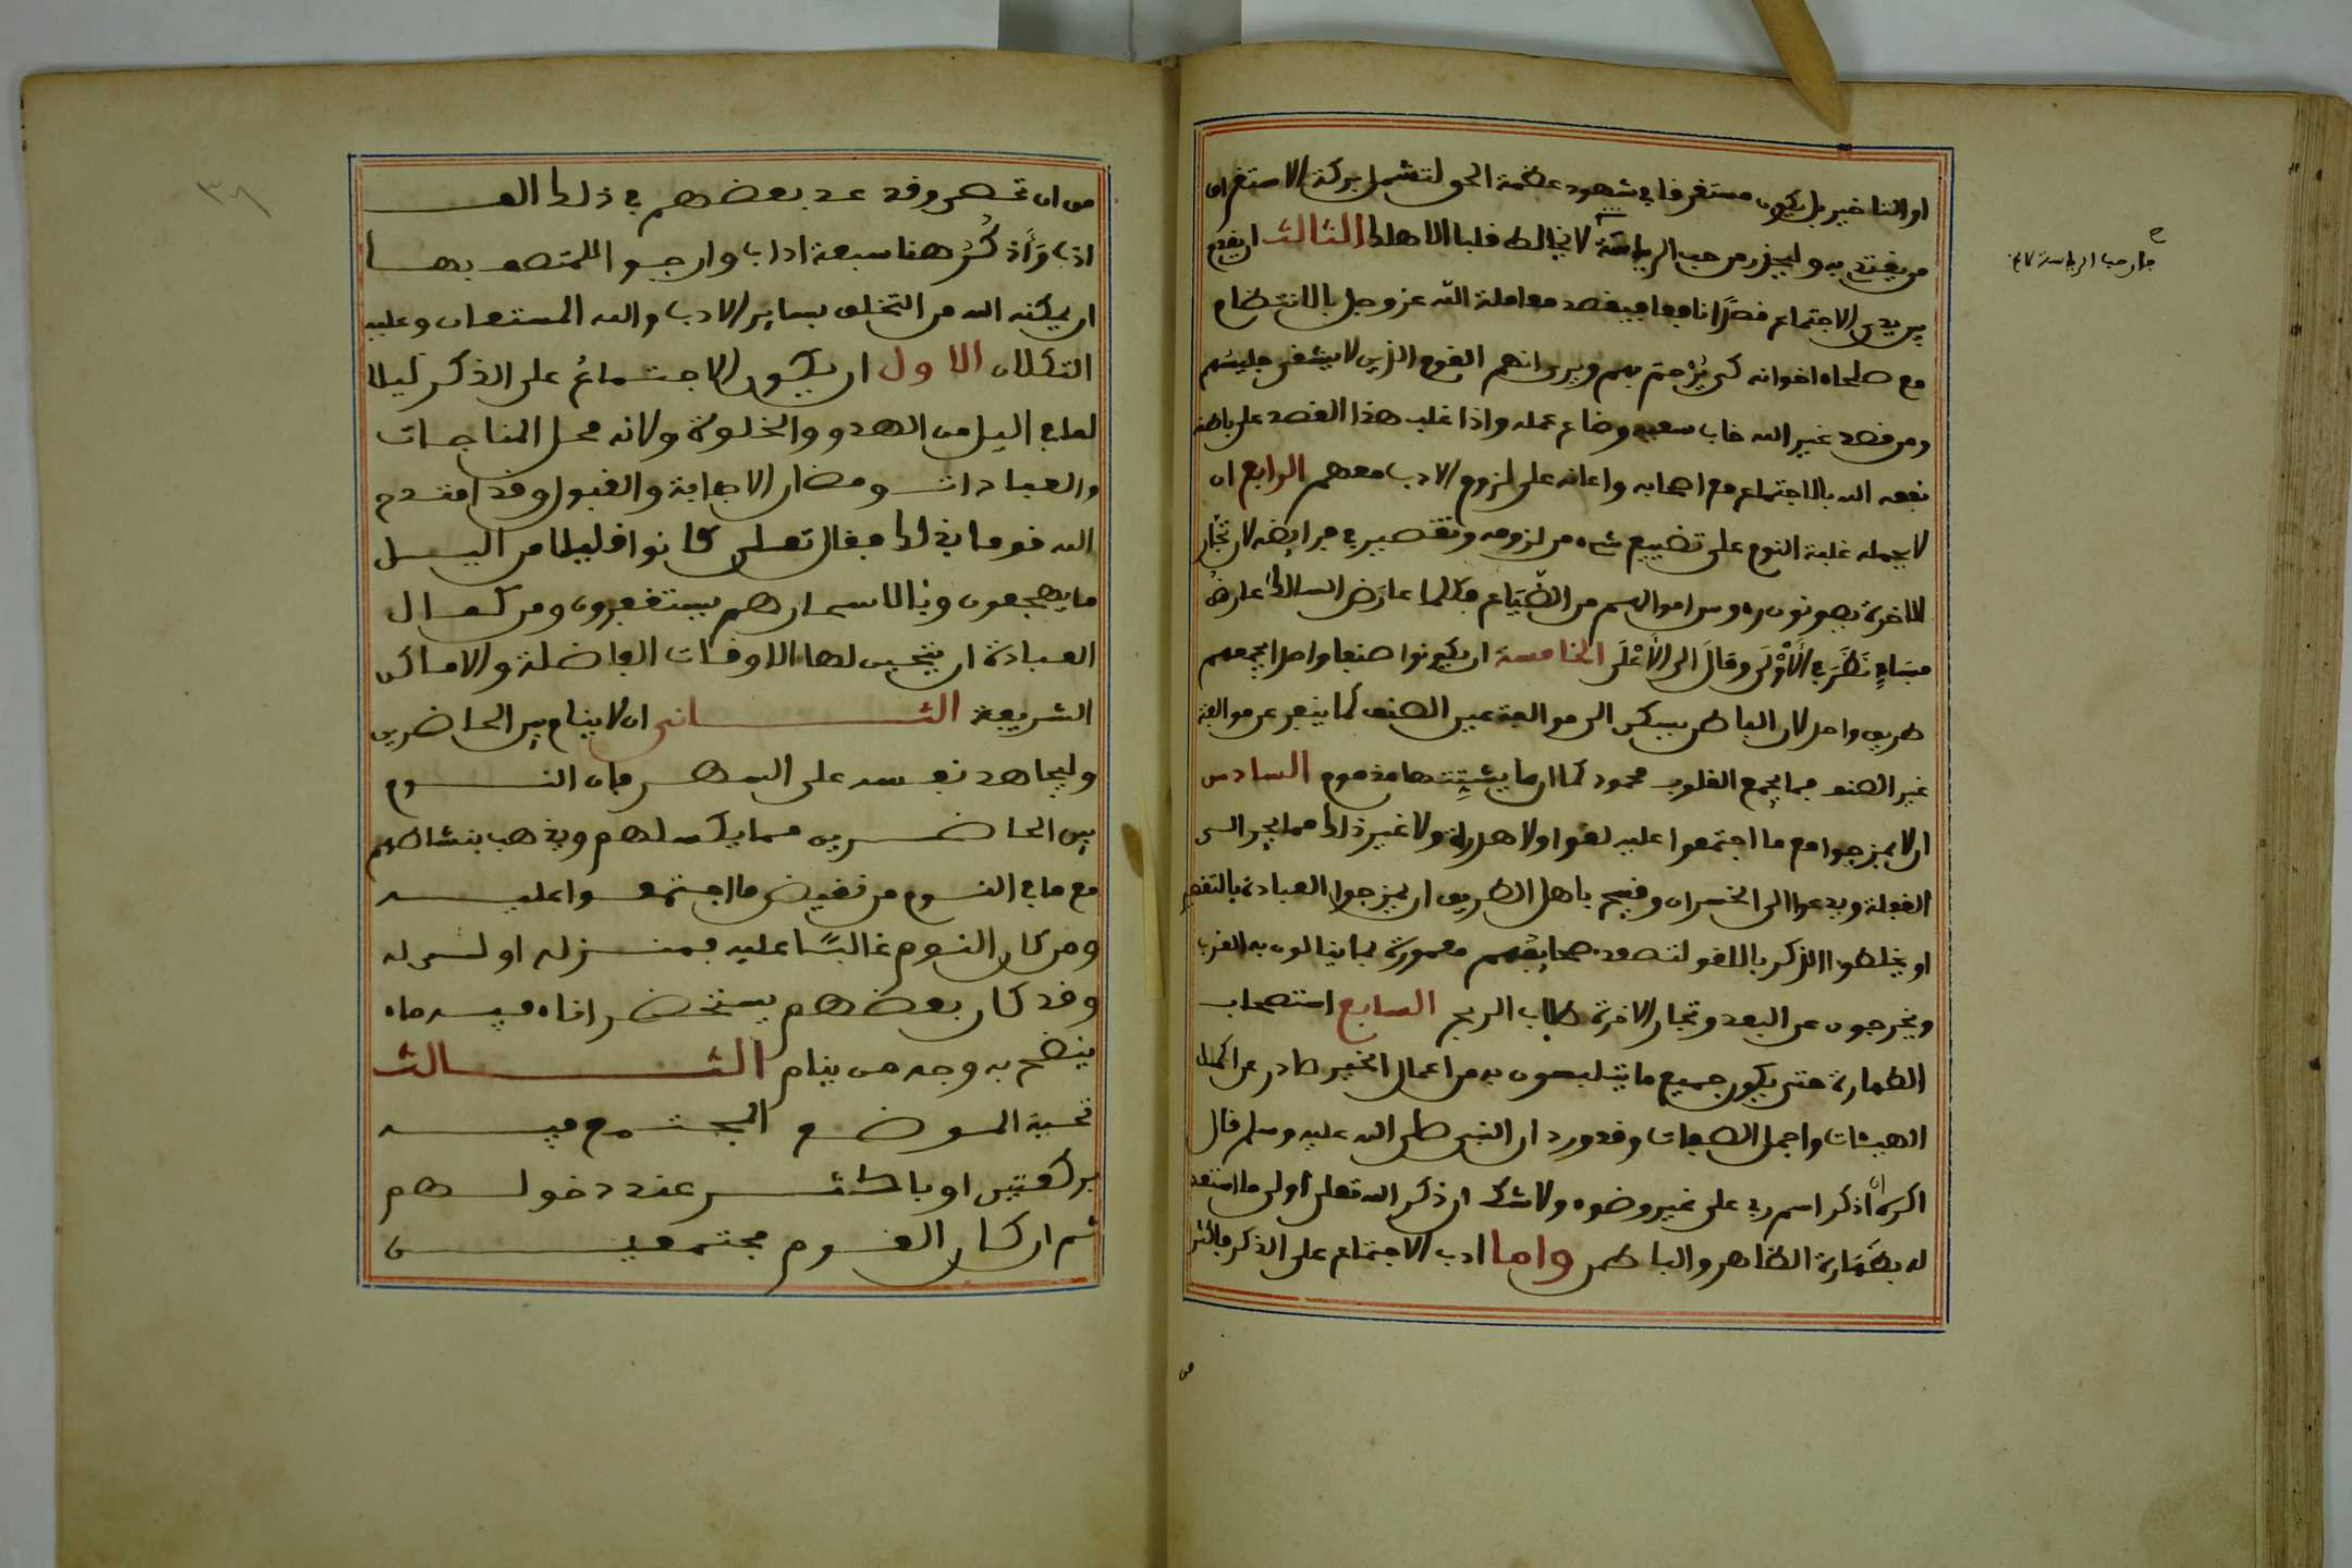 او التاخير بل يكون مستغرقا في شهود عظمة الحق لتشمل بركة الاستغراق
من يقتدي به وليحذر من حب الرياسة لا يخالط قلبا الا هلك الثالث ان يقدم
بين يدي الاجتماع قصدا نافعا فيقصد معاملة الله عز وجل بالانتظام
مع صلحاء اخوانه كي يرحم بهم ويرى انهم القوم الذين لا يشقى جليسهم
ومن قصد غير الله خاب سعيه وضاع عمله واذا غلب هذا القصد على باطنه
نفعه الله بالاجتماع مع اصحابه واعانه على لزوم الادب معهم الرابع ان
لا يحمله غلبة النوم على تضييع شيء من لزومه وتقصير في فرايضه لان تجار
الاخرة يصونون رءوس اموالهم من الضياع فكلما عارض السالك عارض
فساد نظر في الاولى وقال الى الاعلى الخامسة ان يكونوا صنفا واحدا يجمعهم
طريق واحد لان الباطن يسكن الى موالفة عين الصنف كما ينفر عن موالفة
غير الصنف فما يجمع القلوب محمود كما ان ما يشتتها مذموم السادس
ان لا يمزجوا مع ما اجتمعوا عليه لغوا ولا هدرة ولا غير ذلك مما يجر الى
الغفلة ويدعوا الى الخسران وقبيح باهل الطريق ان يمزجوا العبادة بالتقصير
او يخلطوا الذكر باللغو لتصعد صحايفهم معمورة بما ينالون به القرب
ويخرجون عن البعد وتجار الاخرة طلاب الربح السابع استصحاب
الطهارة حتى يكون جميع ما يتلبسون به من اعمال الخير صادر عن اكمل
الهيئات واجمل الصفات وقد ورد ان النبي صلى الله عليه وسلم قال
اكره ان اذكر اسم ربي على غير وضوء ولا شك ان ذكر الله تعلى اولى ما استعد
له بطهارة الظاهر والباطن واما ادب الاجتماع على الذكر فاكثر
من
فان حب الرياسة لا يخ
من ان تحصر وقد عد بعضهم في ذلك الف
ادب وأذكر هنا سبعة اداب وارجو للمتصف بها
ان يمكنه الله من التخلق بساير الادب والله المستعان وعليه
التكلان الاول ان يكون الاجتماع على الذكر ليلا
لما في اليل من الهدو والخلوة ولانه محل المناجات
والعبادات ومضان الاجابة والقبول وقد امتدح
الله قوما بذلك فقال تعلى كانوا قليلا من اليل
ما يهجعون وبالاسحار هم يستغفرون ومن كمال
العبادة ان يتحين لها الاوقات الفاضلة والاماكن
الشريفة الثاني ان لا ينام بين الحاضرين
وليجاهد نفسه على السهر فان النوم
بين الحاضرين مما يكسلهم ويذهب بنشاطهم
مع ما في النوم من نقيض ما اجتمعوا عليه
ومن كان النوم غالبًا عليه فمنزله اولى له
وقد كان بعضهم يستحضر اناء فيه ماء
ينضح به وجه من ينام الثالث
تحية الموضع المجتمع فيه
بركعتين او باكثر عند دخولهم
ثم ان كان القوم مجتمعين
٣٨